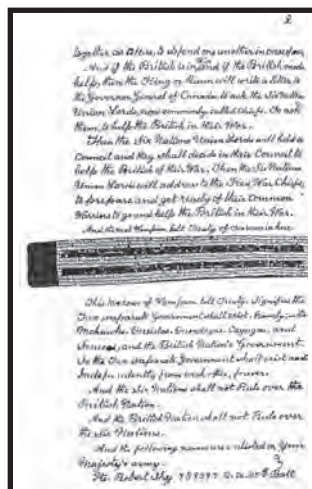 2
together as Allies, to defend one another in case of war.
And if the British is in war and if the British needs
help, then the King or Queen will write a letter to
the Governor General of Canada to ask the Six Nation
Union Lords, now commonly called chiefs. To ask
them, to help the British in their War.
Then the Six Nations Union Lords will hold a
Council and they shall decide in their Council to
help the British of their War. Then the Six Nations
Union Lords will address to the Five War Chiefs
to prepare and get ready of their common
Warriors to go and help the British in their War.
And its Wampum belt Treaty of
This Wampum belt Treaty. Signifies the
Two separate Government shall exist. Namely, the
Mohawks, Oneidas, Onondagas, Cayugas, and
Senecas, and the British Nation's Government.
So the Two separate Government shall exist and
Independently from each other, forever.
And the six Nations shall not Rule over the
British Nation.
And the British Nation shall not Rule over
the six Nations.
And the following names are enlisted in Your
Majesty's army.
Pte. Robert Sky